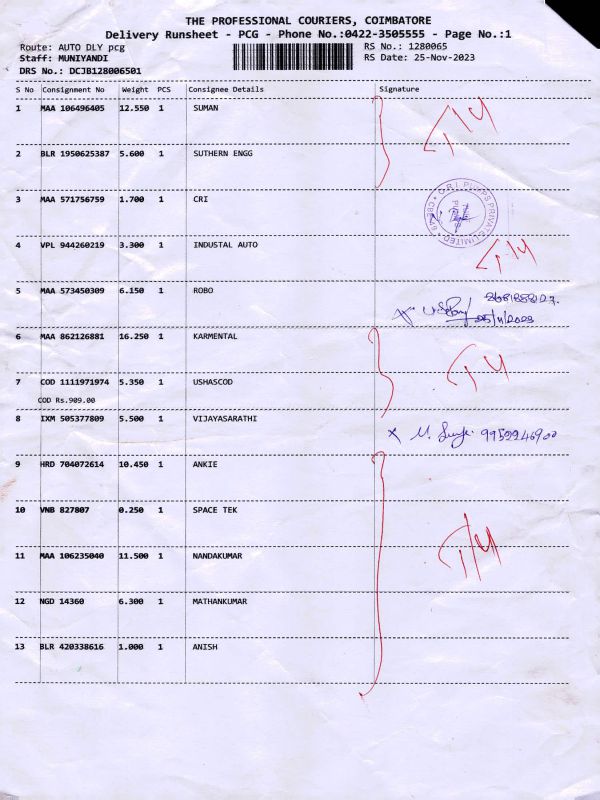 THE PROFESSIONAL COURIERS, COIMBATORE
Delivery Runsheet - PCG - Phone No.:0422-3505555 - Page No.:1
Route: AUTO DLY pcg RS No.: 1280065
Staff: MUNIYANDI RS Date: 25-Nov-2023
DRS No.: DCJB128006501
S No Consignment No Weight PCS Consignee Details Signature
1 MAA 106496405 12.550 1 SUMAN
2 BLR 1950625387 5.600 1 SUTHERN ENGG
3 MAA 571756759 1.700 1 CRI
C.R.I. PUMPS PRIVATE LIMITED
4 VPL 944260219 3.300 1 INDUSTAL AUTO
5 MAA 573450309 6.150 1 ROBO
25/11/2023
6 MAA 862126881 16.250 1 KARMENTAL
7 COD 1111971974 5.350 1 USHASCOD
COD Rs.909.00
8 IXM 505377809 5.500 1 VIJAYASARATHI
9 HRD 704072614 10.450 1 ANKIE
10 VNB 827807 0.250 1 SPACE TEK
11 MAA 106235040 11.500 1 NANDAKUMAR
12 NGD 14360 6.300 1 MATHANKUMAR
13 BLR 420338616 1.000 1 ANISH